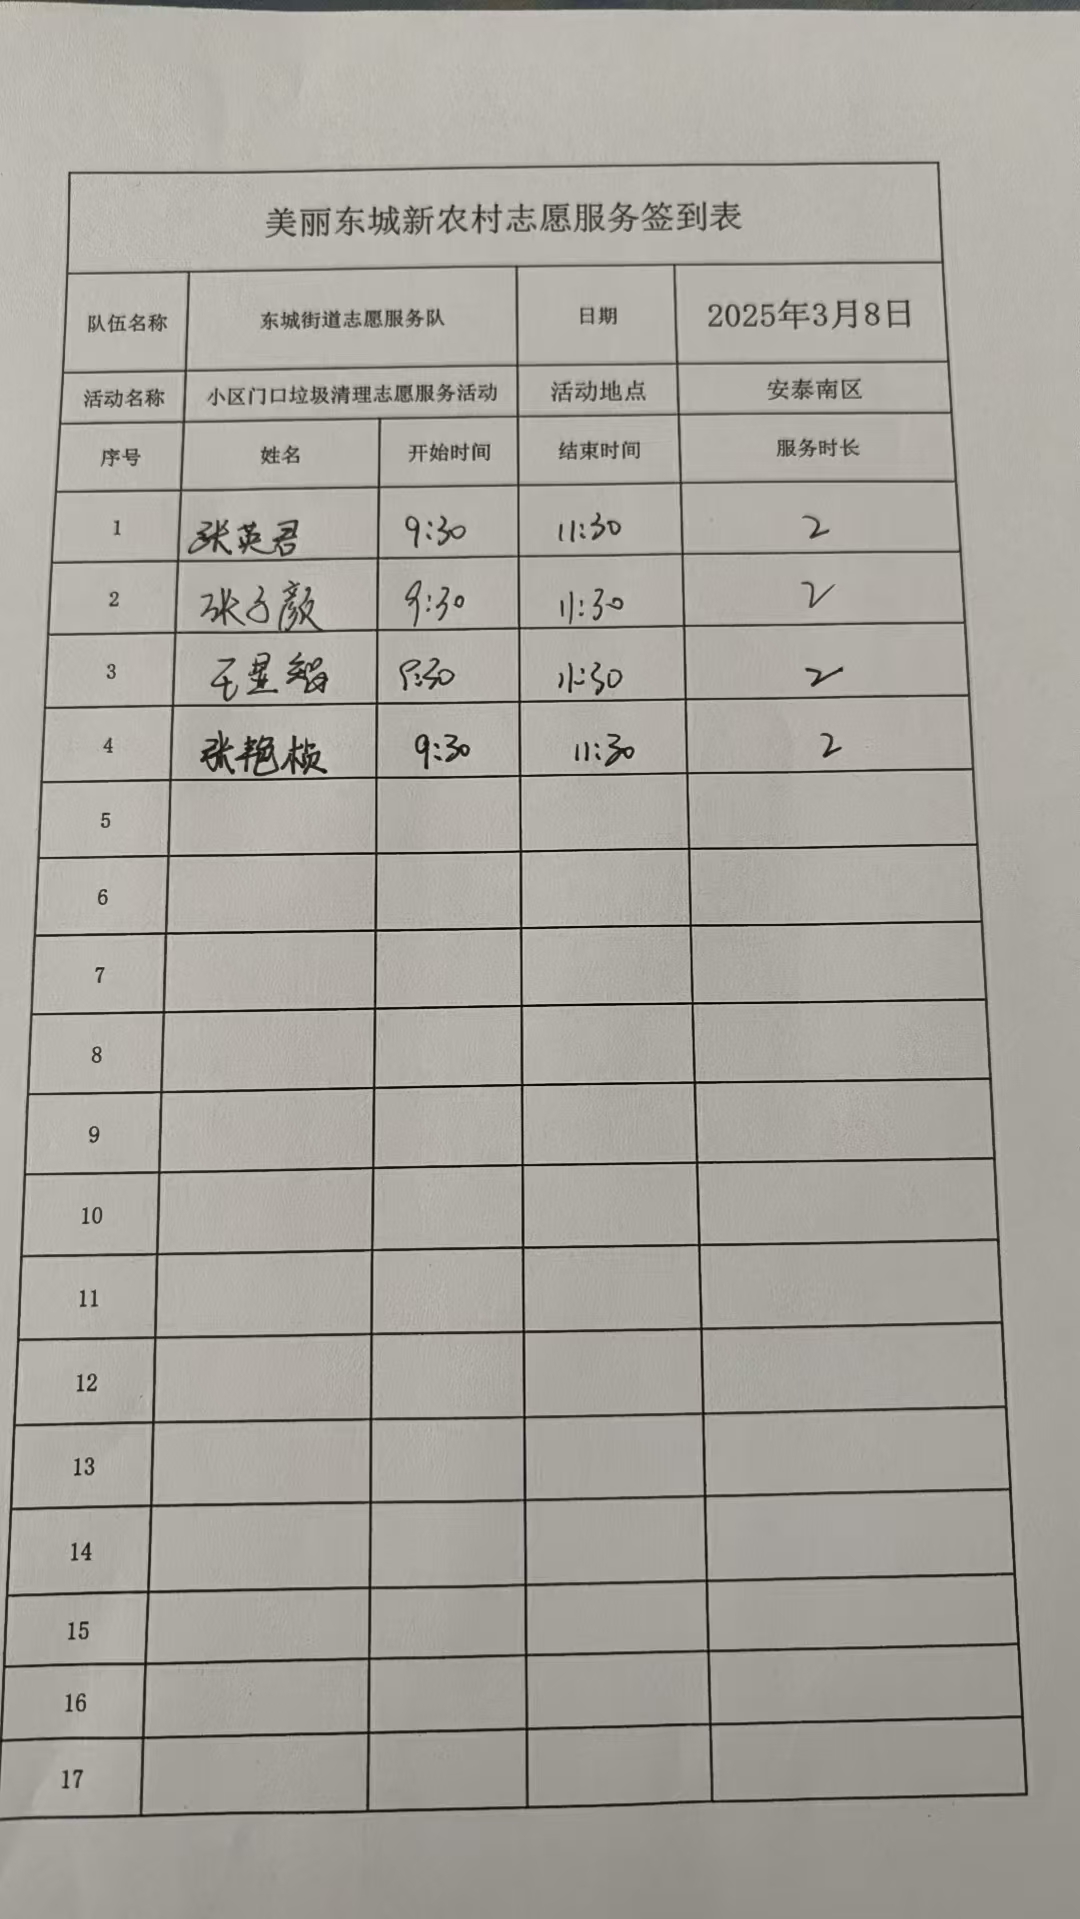 美丽东城新农村志愿服务签到表
队伍名称 东城街道志愿服务队 日期 2025年3月8日
活动名称 小区门口垃圾清理志愿服务活动 活动地点 安泰南区
序号 姓名 开始时间 结束时间 服务时长
1 张英君 9:30 11:30 2
2 张子颜 9:30 11:30 2
3 王星智 9:30 11:30 2
4 张艳桢 9:30 11:30 2
5
6
7
8
9
10
11
12
13
14
15
16
17